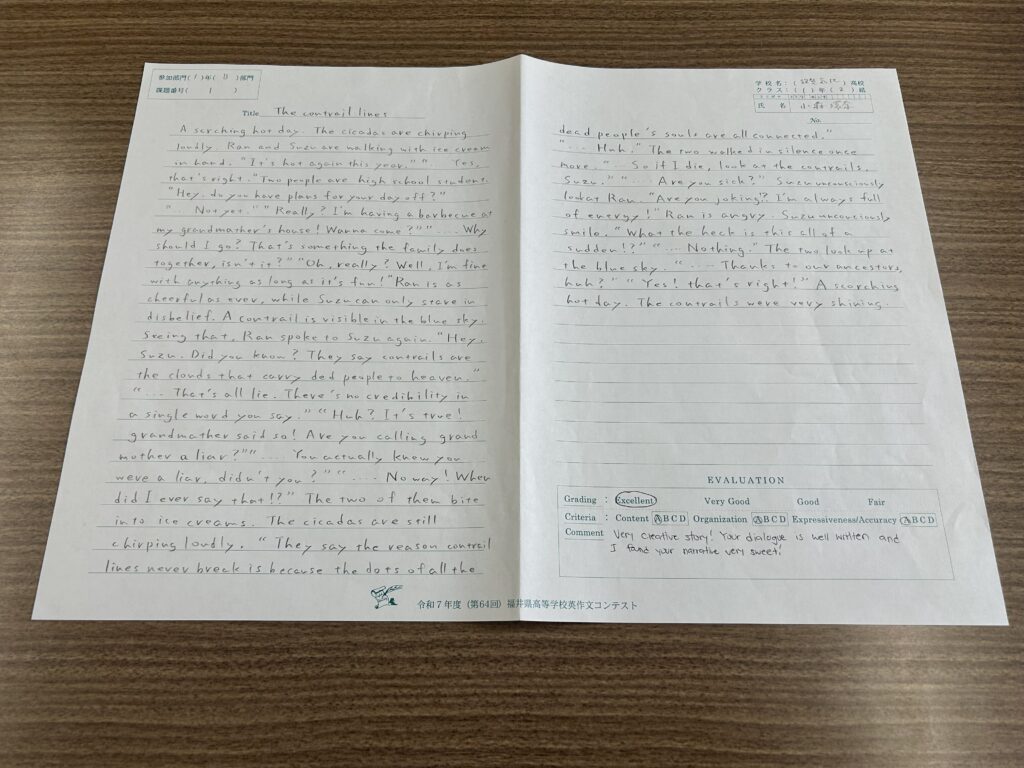 参加部門( 1 )年( B )部門
課題番号( 1 )
Title The contrail lines
A scrching hot day. The cicadas are chirping
loudly. Ran and Suzu are walking with ice cream
in hand. "It's hot again this year." "... Yes,
that's right." Two people are high school student.
"Hey, do you have plans for your day off?"
"... Not yet." "Really? I'm having a barbecue at
my grandmother's house! Wanna come?" "... Why
should I go? That's something the family dues
together, isn't it?" "Oh, really? Well, I'm fine
with anything as long as it's fun!" Ran is as
cheerful as ever, while Suzu can only stare in
disbelief. A contrail is visible in the blue sky.
Seeing that, Ran spoke to Suzu again. "Hey,
Suzu. Did you know? They say contrails are
the clouds that carry ded people to heaven."
"... That's all lie. There's no credibility in
a single word you say." "Huh? It's true!
grandmother said so! Are you calling grand
mother a liar?" "... You actually knew you
were a liar, didn't you?" "... No way! When
did I ever say that!?" The two of them bite
into ice creams. The cicadas are still
chirping loudly. "They say the reason contrail
lines never break is because the dots of all the
学校名:( )高校
クラス:( 1 )年( 2 )組
氏 名 小
No.
dead people's souls are all connected."
"... Huh." The two walked in silence once
more. "... So if I die, look at the contrails,
Suzu." "... Are you sick?" Suzu unconsciously
look at Ran. "Are you joking!? I'm always full
of energy!" Ran is angry. Suzu unconsciously
smile. "What the heck is this all of a
sudden!?" "... Nothing." The two look up at
the blue sky. "... Thanks to our ancestors,
huh?" "Yes! that's right!" A scorching
hot day. The contrails were very shining.
EVALUATION
Grading : Excellent Very Good Good Fair
Criteria : Content A B C D Organization A B C D Expressiveness/Accuracy A B C D
Comment Very creative story! Your dialogue is well written and
I found your narrative very sweet!
令和7年度(第64回)福井県高等学校英作文コンテスト